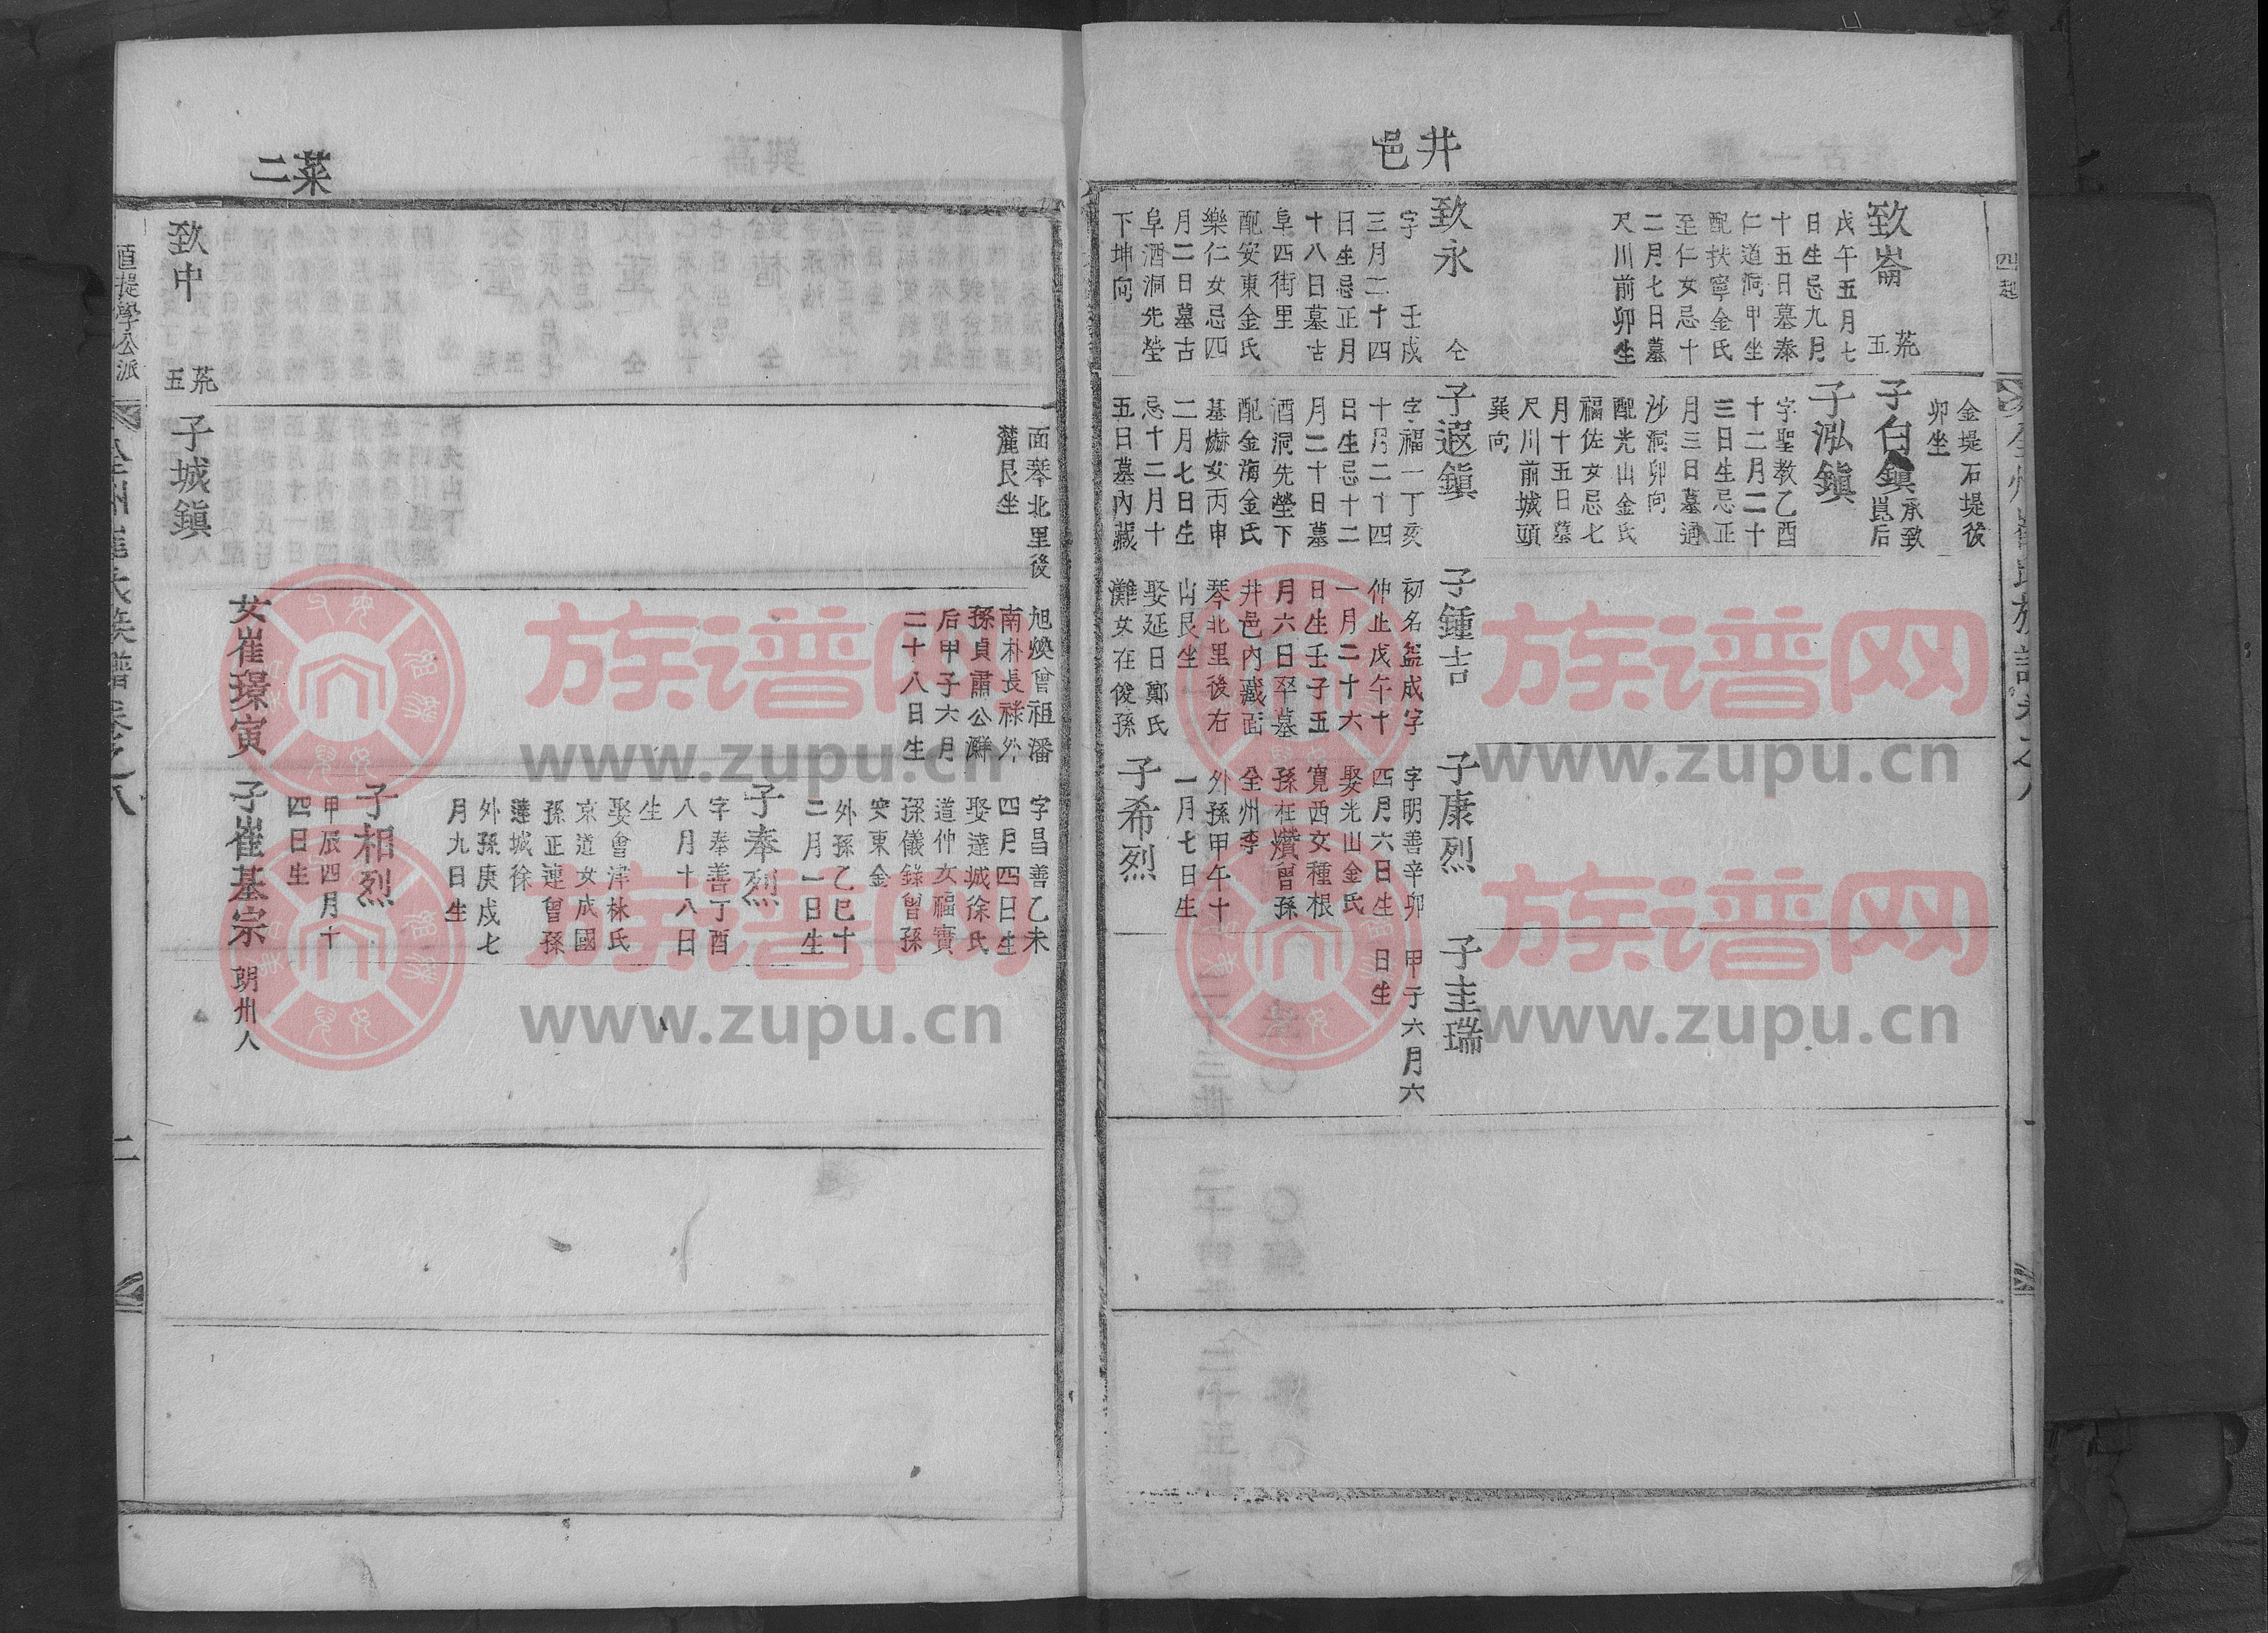 井邑
致崙
荒五
戊午五月七
日生忌九月
十五日墓泰
仁道洞甲坐
配扶寧金氏
至仁女忌十
二月七日墓
尺川前卯坐
致永
仝
字 壬戌
三月二十四
日生忌正月
十八日墓古
阜四街里
配安東金氏
樂仁女忌四
月二日墓古
阜酒洞先塋
下坤向
金堤石堤後
卯坐
子白鎭
承致
崑后
子泓鎭
字聖教乙酉
十二月二十
三日生忌正
月三日墓通
沙洞卯向
配光山金氏
福佐女忌七
月十五日墓
尺川前城頭
巽向
子遐鎭
字福一丁亥
十月二十四
日生忌十二
月二十日墓
酒洞先塋下
配金海金氏
基爀女丙申
二月七日生
忌十二月十
五日墓內藏
子鍾吉
初名益成字
仲止戊午十
一月二十六
日生壬子五
月六日卒墓
井邑內藏面
琴北里後右
山艮坐
娶延日鄭氏
灘女在俊孫
子康烈
字明善辛卯
四月六日生
娶光山金氏
寬西女種根
孫在爀曾孫
全州李
外孫甲午十
一月七日生
子希烈
子圭瑞
甲子六月六
日生
菜二
面琴北里後
麓艮坐
旭煥曾祖潘
南朴長祿外
孫貞肅公
后甲子六月
二十八日生
字昌善乙未
四月四日生
娶達城徐氏
道仲女福寶
孫儀錄曾孫
安東金
外孫乙巳十
二月一日生
子奉烈
字奉善丁酉
八月十八日
生
娶會津林氏
京道女成國
孫正連曾孫
達城徐
外孫庚戌七
月九日生
子相烈
甲辰四月十
四日生
致中
荒五
子城鎭
女崔璟寅
子崔基宗
朗州人
直提學公派
二
族谱网
www.zupu.cn
族谱网
www.zupu.cn
族谱网
www.zupu.cn
族谱网
www.zupu.cn